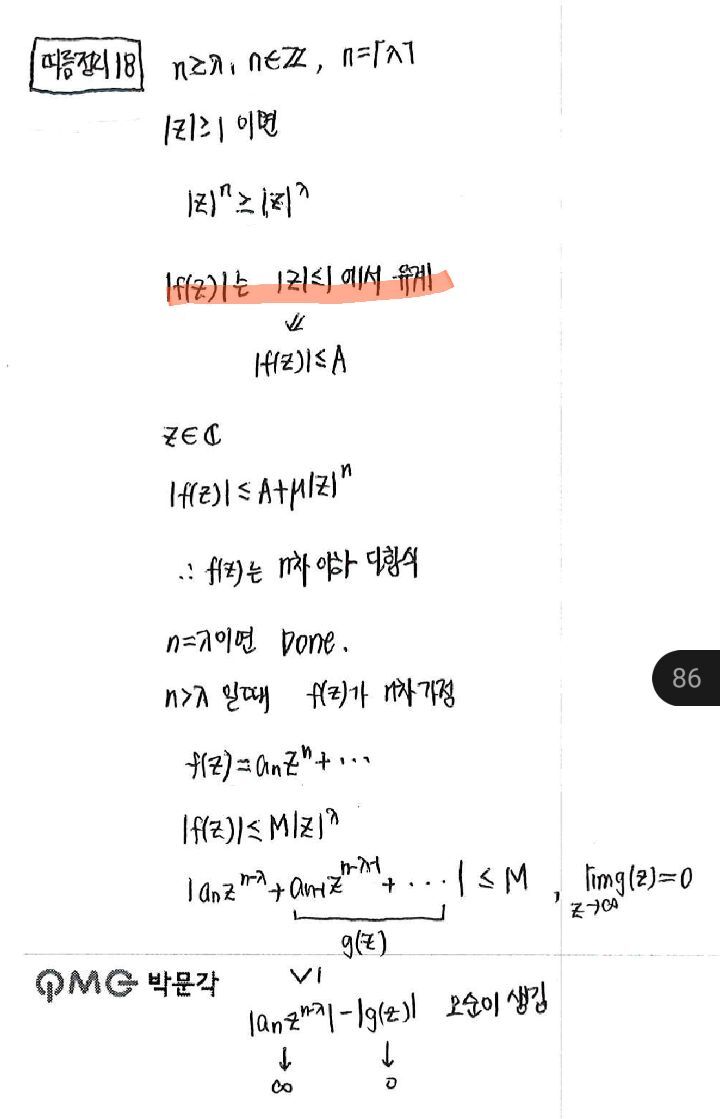 따름정리18 n≥λ, n∈ℤ, n=⌈λ⌉
|z|≥1 이면
|z|ⁿ≥|z|^λ
|f(z)|는 |z|≤1 에서 유계
⇓
|f(z)|≤A
z∈ℂ
|f(z)|≤A+M|z|ⁿ
∴ f(z)는 n차 이하 다항식
n=λ이면 Done.
n>λ 일때 f(z)가 n차 가정
86
f(z)=aₙzⁿ+⋯
|f(z)|≤M|z|^λ
|aₙz^(n-λ)+aₙ₋₁z^(n-λ-1)+⋯|≤M, lim g(z)=0
z→∞
g(z)
QMG 박문각
∨|
|aₙz^(n-λ)|-|g(z)| 모순이 생김
↓ ↓
∞ 0